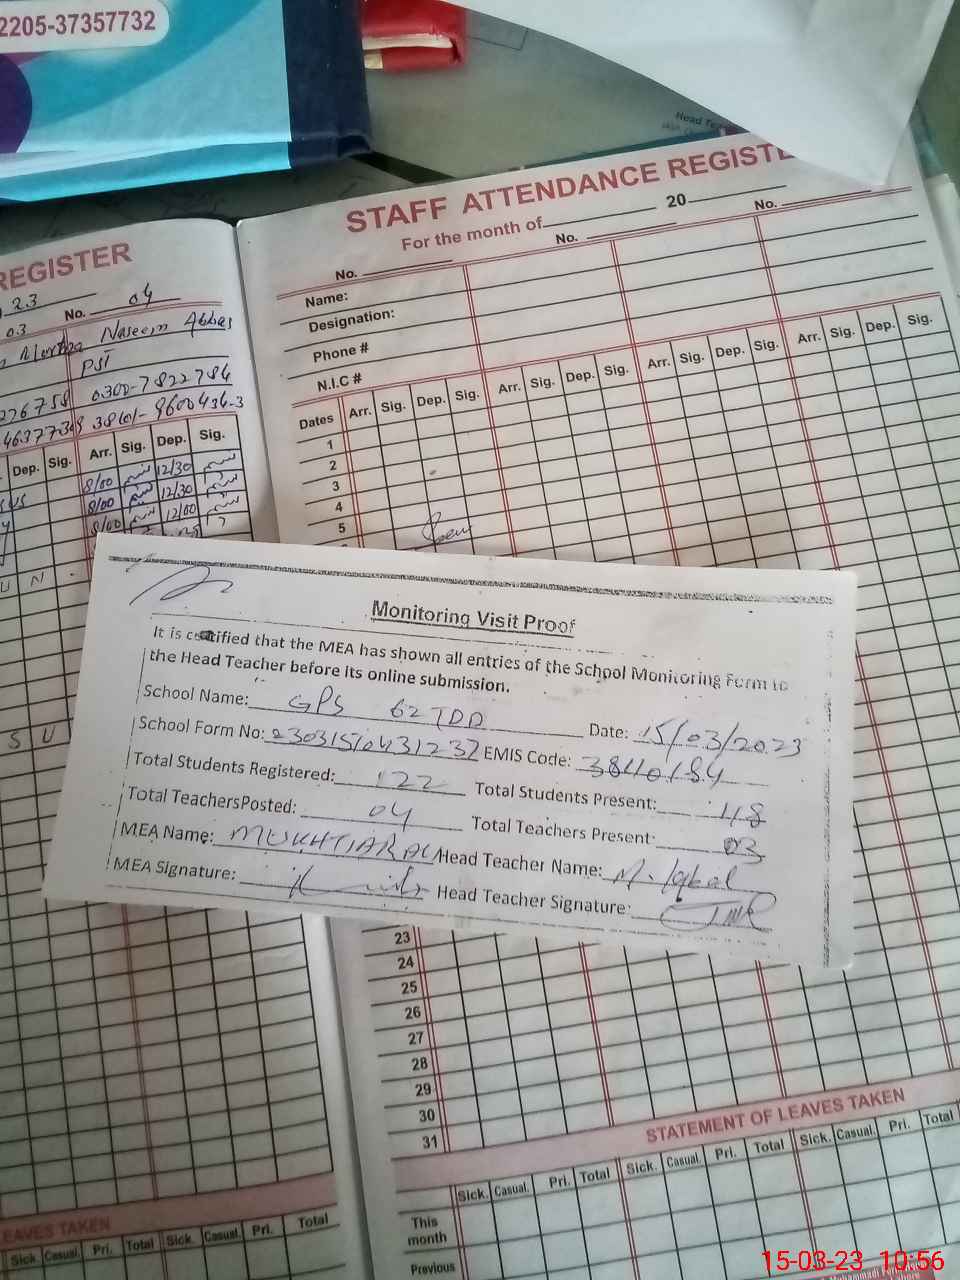 2205-37357732
Head Tea
STAFF ATTENDANCE REGISTE
For the month of 20
No. No. No.
Name:
Designation:
Phone #
N.I.C #
Dates Arr. Sig. Dep. Sig. Arr. Sig. Dep. Sig. Arr. Sig. Dep. Sig. Arr. Sig. Dep. Sig.
1
2
3
4
5
REGISTER
23 No. 04
03
Naseem Abbas
PST
276758 0300-7822784
4637730
Dep. Sig. Arr. Sig. Dep. Sig.
8/00 12/30
8/00 12/30
8/00 12/00
U N
S U
Monitoring Visit Proof
It is certified that the MEA has shown all entries of the School Monitoring Form to
the Head Teacher before its online submission.
School Name: GPS 62 TDA Date: 15/03/2023
School Form No: EMIS Code: 38410184
Total Students Registered: 122 Total Students Present: 118
Total TeachersPosted: 04 Total Teachers Present: 03
MEA Name: MUKHTIAR ALI Head Teacher Name: M. Iqbal
MEA Signature: Head Teacher Signature:
23
24
25
26
27
28
29
30
31
STATEMENT OF LEAVES TAKEN
Sick. Casual. Pri. Total Sick. Casual. Pri. Total Sick. Casual. Pri. Total
This
month
Previous
LEAVES TAKEN
Sick Casual. Pri. Total Sick. Casual. Pri. Total
15-03-23 10:56